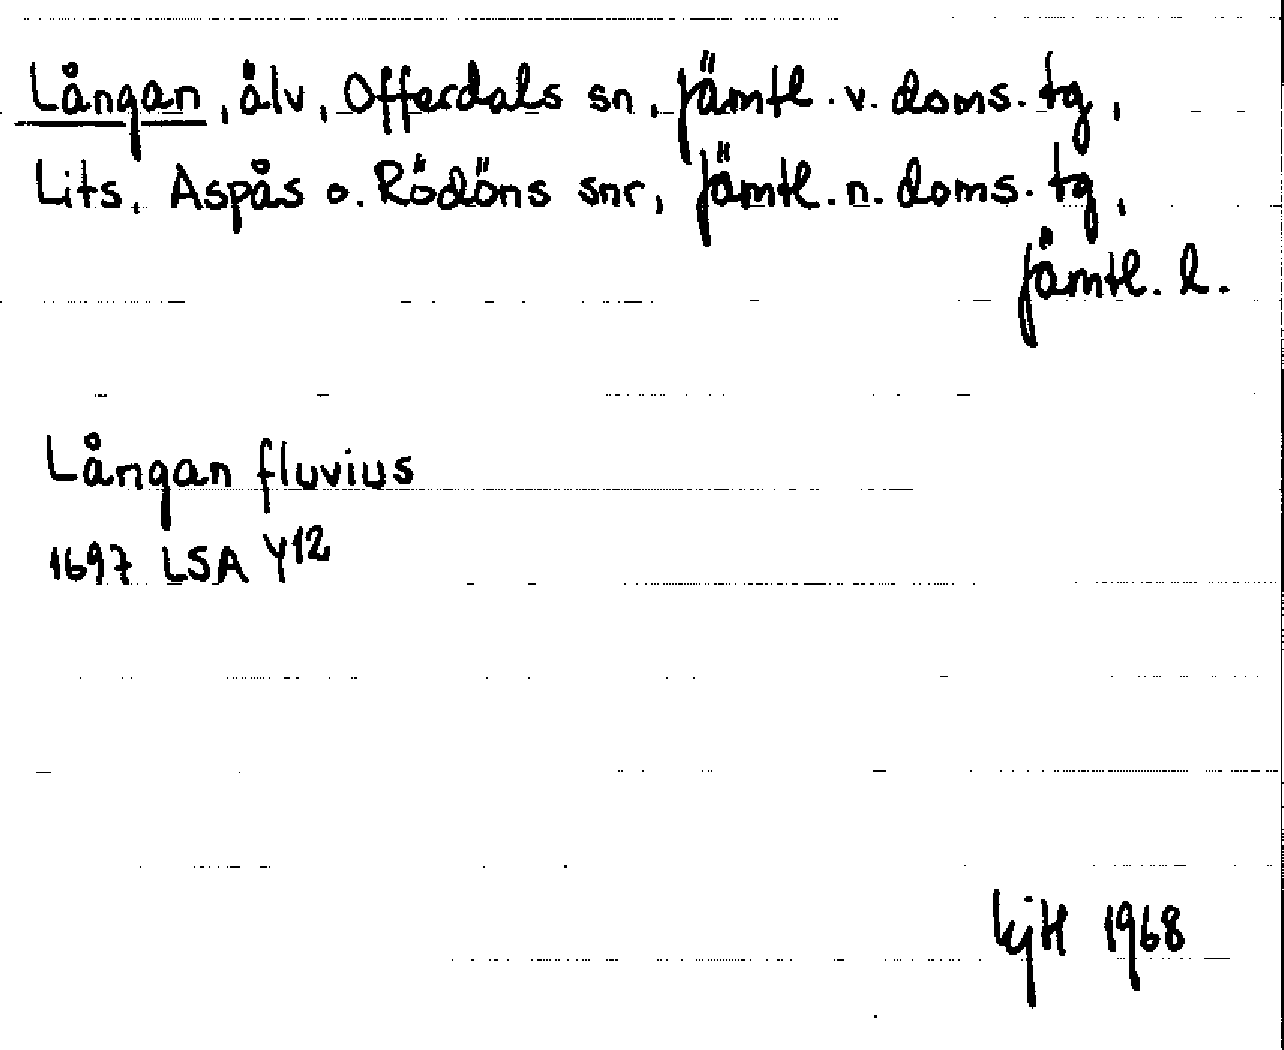 Långan, älv, Offerdals sn, Jämtl. v. doms. tg,
Lits, Aspås o. Rödöns snr, Jämtl. n. doms. tg,
Jämtl. l.
Långan fluvius
1697 LSA Y12
KjH 1968